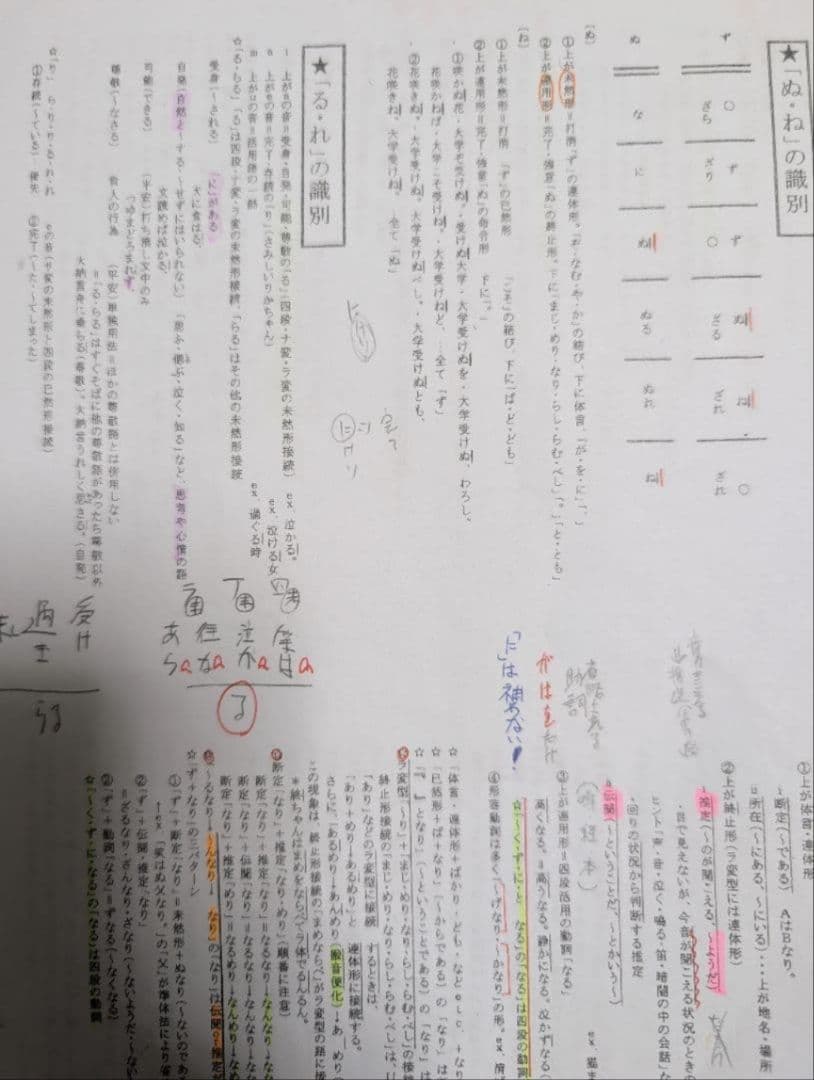 ★「ぬ・ね」の識別
ず ○ ず ○ ぬ ね ○
ざら ざり ず ざる ざれ ざれ
ぬ な に ぬ ぬる ぬれ ね
〔ぬ〕
①上が未然形＝打消「ず」の連体形。「ぞ・なむ・や・か」の結び、下に体言、「が・を・に」「、」
②上が連用形＝完了・強意「ぬ」の終止形。下に「まじ・めり・なり・らし・らむ・べし」「。」「と・とも」
〔ね〕
①上が未然形＝打消 「ず」の已然形 「こそ」の結び、下に「ば・ど・ども」
②上が連用形＝完了・強意「ぬ」の命令形 下に「。」
①咲かぬ花・大学ぞ受けぬ・受けぬ大学・大学受けぬを・大学受けぬ、わろし。
花咲かねば・大学こそ受けね。・大学受けねど、…全て「ず」
②花咲きぬ。・大学受けぬ。・大学受けぬべし。・大学受けぬとも、
花咲きね。大学受けね。 …全て「ぬ」
★「る・れ」の識別
i 上がaの音＝受身・自発・可能・尊敬の「る」（四段・ナ変・ラ変の未然形接続） ex、泣かる。
ii 上がeの音＝完了・存続の「り」（さみしいりかちゃん） ex、泣ける女
iii 上がuの音＝活用語の一部 ex、過ぐる時
☆「る・らる」「る」は四段・ナ変・ラ変の未然形接続、「らる」はその他の未然形接続
受身（～される） 「に」がある
犬に食はる。
自発（自然と～する・～せずにはいられない） 「思ふ・偲ぶ・泣く・知る」など、思考や心情の語
文読めば泣かる。
可能（できる） （平安）打ち消し文中のみ
つゆまどろまれず。
尊敬（～なさる） 貴人の行為 （平安）単独用法＝ほかの尊敬語とは併用しない
＝「る・らる」はすぐそばに他の尊敬語があったら尊敬以外
大納言舟に乗らる（尊敬）。大納言うれしく思さる。（自発）
☆「り」 ら・り・り・る・れ・れ eの音（サ変の未然形と四段の已然形接続）
①存続（～ている） 優先 ②完了（～た・～てしまった）
四 席は a
ナ 泣か a
往な a
ラ あら a
る
受け
過ぎ
らる
がはをだけ
「に」は補わない！
助詞
①上が体言・連体形
断定（～である） AはBなり。
＝所在（～にある、～にいる）…上が地名・場所
②上が終止形（ラ変型には連体形）
推定（～のが聞こえる、～ようだ）
・目で見えないが、今音が聞こえる状況のときの
ヒント「声・音・泣く・鳴る・笛・暗闇の中の会話」な
・回りの状況から判断する推定
伝聞（～ということだ、～とかいう～）
③上が連用形＝四段活用の動詞「なる」
高くなる。＝高うなる。静かになる。泣かずなる（
☆「～く・ず・に・と なる」の「なる」は四段の動詞
④形容動詞は多く「～げなり・～かなり」の形。ex、
☆「体言・連体形＋ばかり・ども・などetc、＋なり
☆「已然形＋ば＋なり」（～からである）の「なり」は
☆「『。』となり」（～ということである）の「なり」は
ラ変型（～り）＋「まじ・めり・なり・らし・らむ・べし」の接続
終止形接続の「まじ・めり・なり・らし・らむ・べし」は、
「あり」などのラ変型に接続するときは、
「あり＋めり→あるめり」と 連体形に接続する。
さらに、「あるめり→あんめり（撥音便化）→あ めり（
この現象は、終止形接続の「まめならべ」がラ変型の語に接
＊終ちゃんはまめをならべてラ体でるんるん。
断定「なり」＋推定「なり・めり」（順番に注意）
断定「なり」＋推定「なり」＝なるなり→なんなり→な
断定「なり」＋伝聞「なり」＝なるなり→なんなり→な
断定「なり」＋推定「めり」＝なるめり→なんめり→な
～るなり→～んなり→ なり」の「なり」は伝聞・推定
☆「ず＋なり」の三パターン
①「ず」＋断定「なり」＝未然形＋ぬなり（～ないのであ
ex、「笑はぬ父なり。」の「父」が準体法により省
②「ず」＋伝聞・推定「なり」
＝ざるなり・ざんなり・ざなり（～ないようだ・～な
③「ず」＋動詞「なる」＝ずなる（～なくなる）
☆「～く・ず・に・なる」の「なる」は四段の動詞